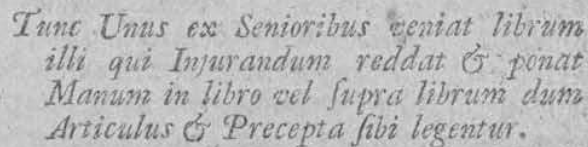 Tunc Unus ex Senioribus veniat librum
illi qui Injurandum reddat & ponat
Manum in libro vel ſupra librum dum
Articulus & Precepta ſibi legentur.